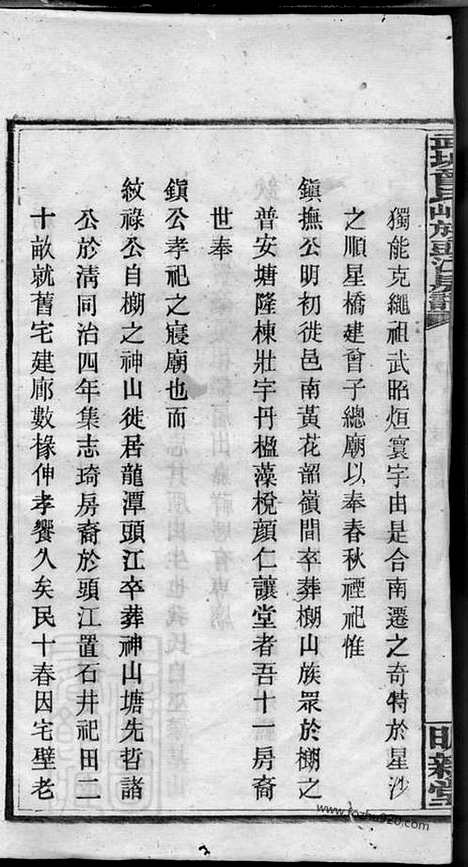 獨能克繩祖武昭烜寰宇由是合南遷之奇特於星沙
之順星橋建曾子總廟以奉春秋禋祀惟
鎭撫公明初徙邑南黃花韶嶺間卒葬櫉山族眾於櫉之
普安塘隆棟壯宇丹楹藻梲顏仁讓堂者吾十一房裔
世奉
鎭公孝祀之寢廟也而
紋祿公自櫉之神山徙居龍潭頭江卒葬神山塘先哲諸
公於清同治四年集志琦房裔於頭江置石井祀田二
十畝就舊宅建廊數椽伸孝饗久矣民十春因宅壁老
明新堂
www.fozhu920.com